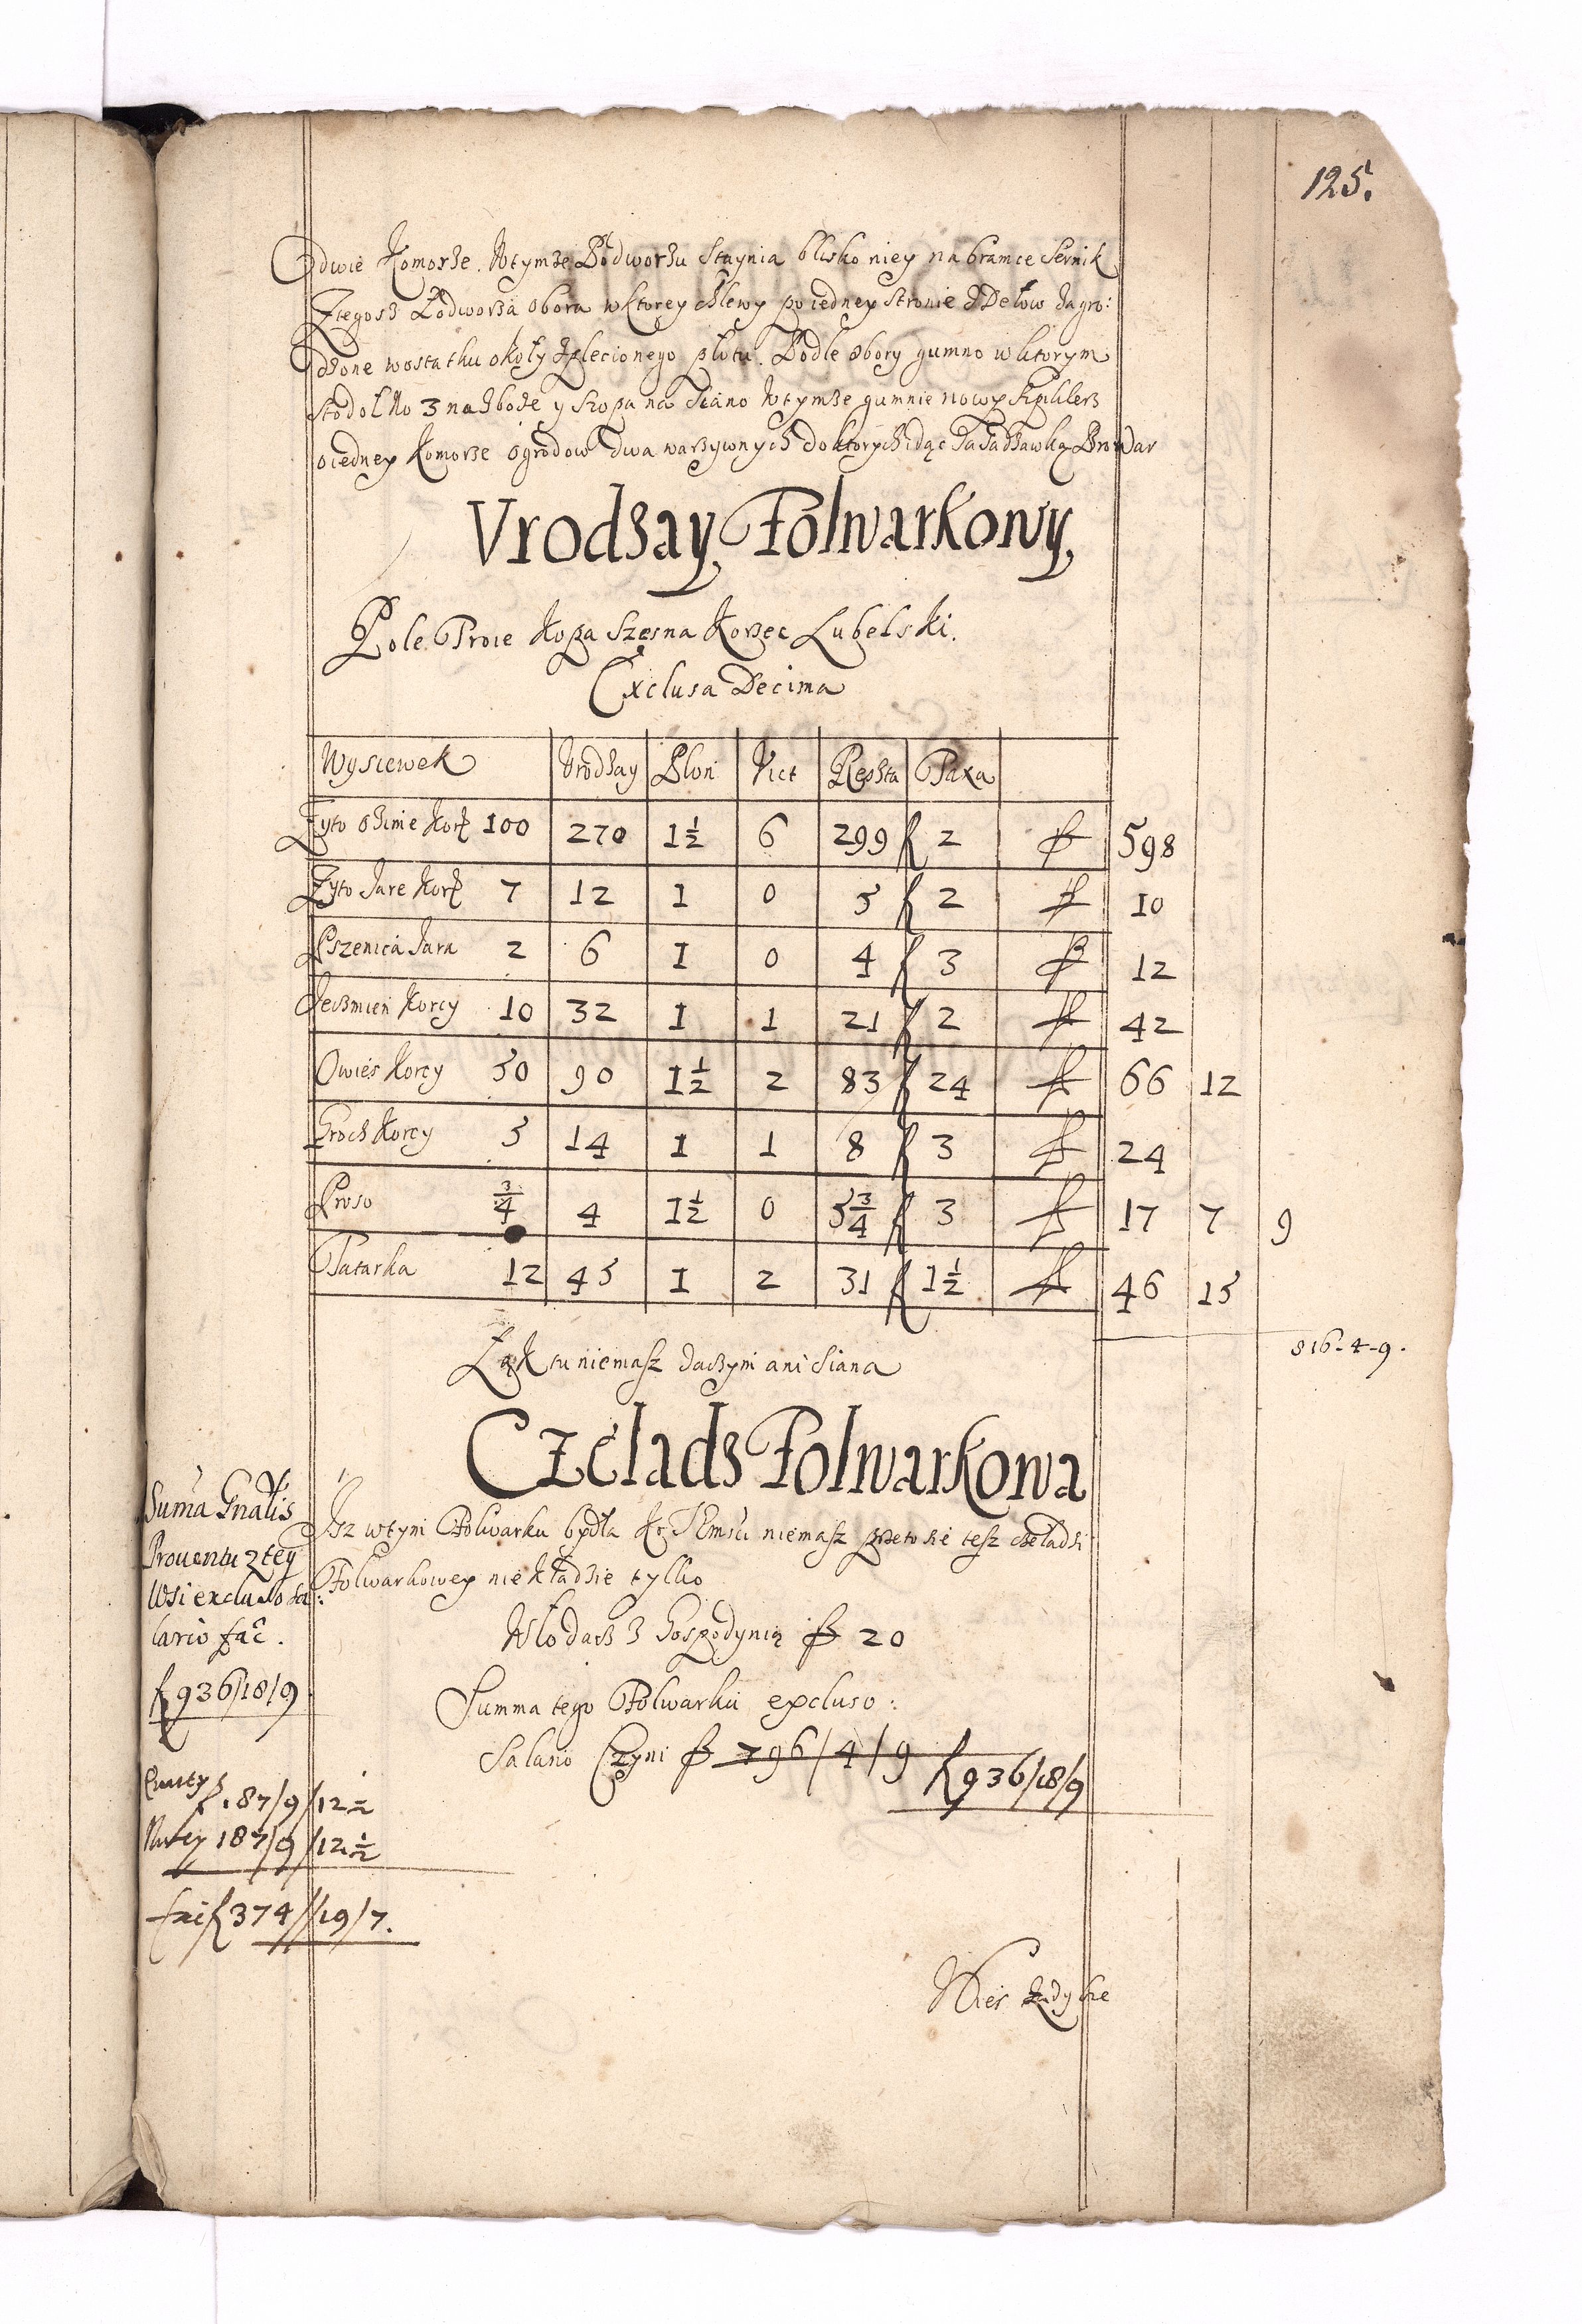 125.
O dwie Komorze. Wtymze Podworzu Staynia blisko niey na bramce Sernik
Ztegosz Podworza obora wktorey chlewy poiedney stronie z Delow zagro:
dzone wostatku okoły zplecionego płotu. Podle obory gumno wktorym
stodoł No 3 na zboże y szopa na Siano Wtymze gumnie nowy szpiklerz
oiedney Komorze ogrodow dwa warzywnych do ktorych idąc Sadzawka Browar
Vrodzay Folwarkowy.
Pole Troie Kopa Szesna Korzec Lubelski.
Exclusa Decima
Wysiewek Vrodzay Plon Vict Reszta Taxa
Zyto Ozime Korz 100 270 1½ 6 299 f 2 fl 598
Zyto Jare Korz 7 12 1 0 5 f 2 fl 10
Pszenica Jara 2 6 1 0 4 f 3 fl 12
Jeczmien Korcy 10 32 1 1 21 f 2 fl 42
Owies Korcy 50 90 1½ 2 83 f 24 fl 66 12
Groch Korcy 5 14 1 1 8 f 3 fl 24
Proso ¾ 4 1½ 0 5¾ f 3 fl 17 7 9
Tatarka 12 45 1 2 31 f 1½ fl 46 15
816-4-9.
Łąk tu niemasz daczyni ani Siana
Czeladz Folwarkowa
Isz wtym Folwarku bydła niemasz przeto sie tesz czeladzi
Folwarkowey nie kładzie tylko
Włodarz z Gospodynią fl 20
Summa tego Folwarku excluso:
Salario Czyni fl 796/4/9 f 936/18/9
Suma Gnalis
Prouentu z tey
Wsi excluso sa:
lario fac.
f 936/18/9
f 187/9/12½
187/9/12½
f 374//19/7.
Wies